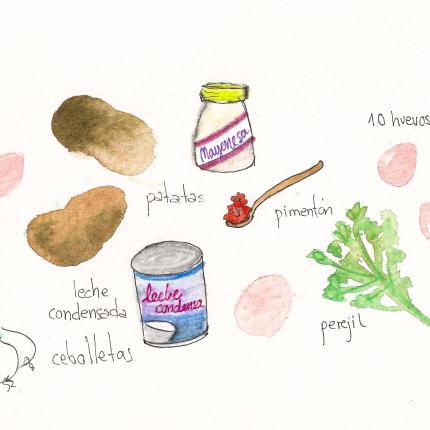 10 huevos
Mayonesa
patatas
pimentón
leche
condensada
leche
condensa
cebolletas
perejil